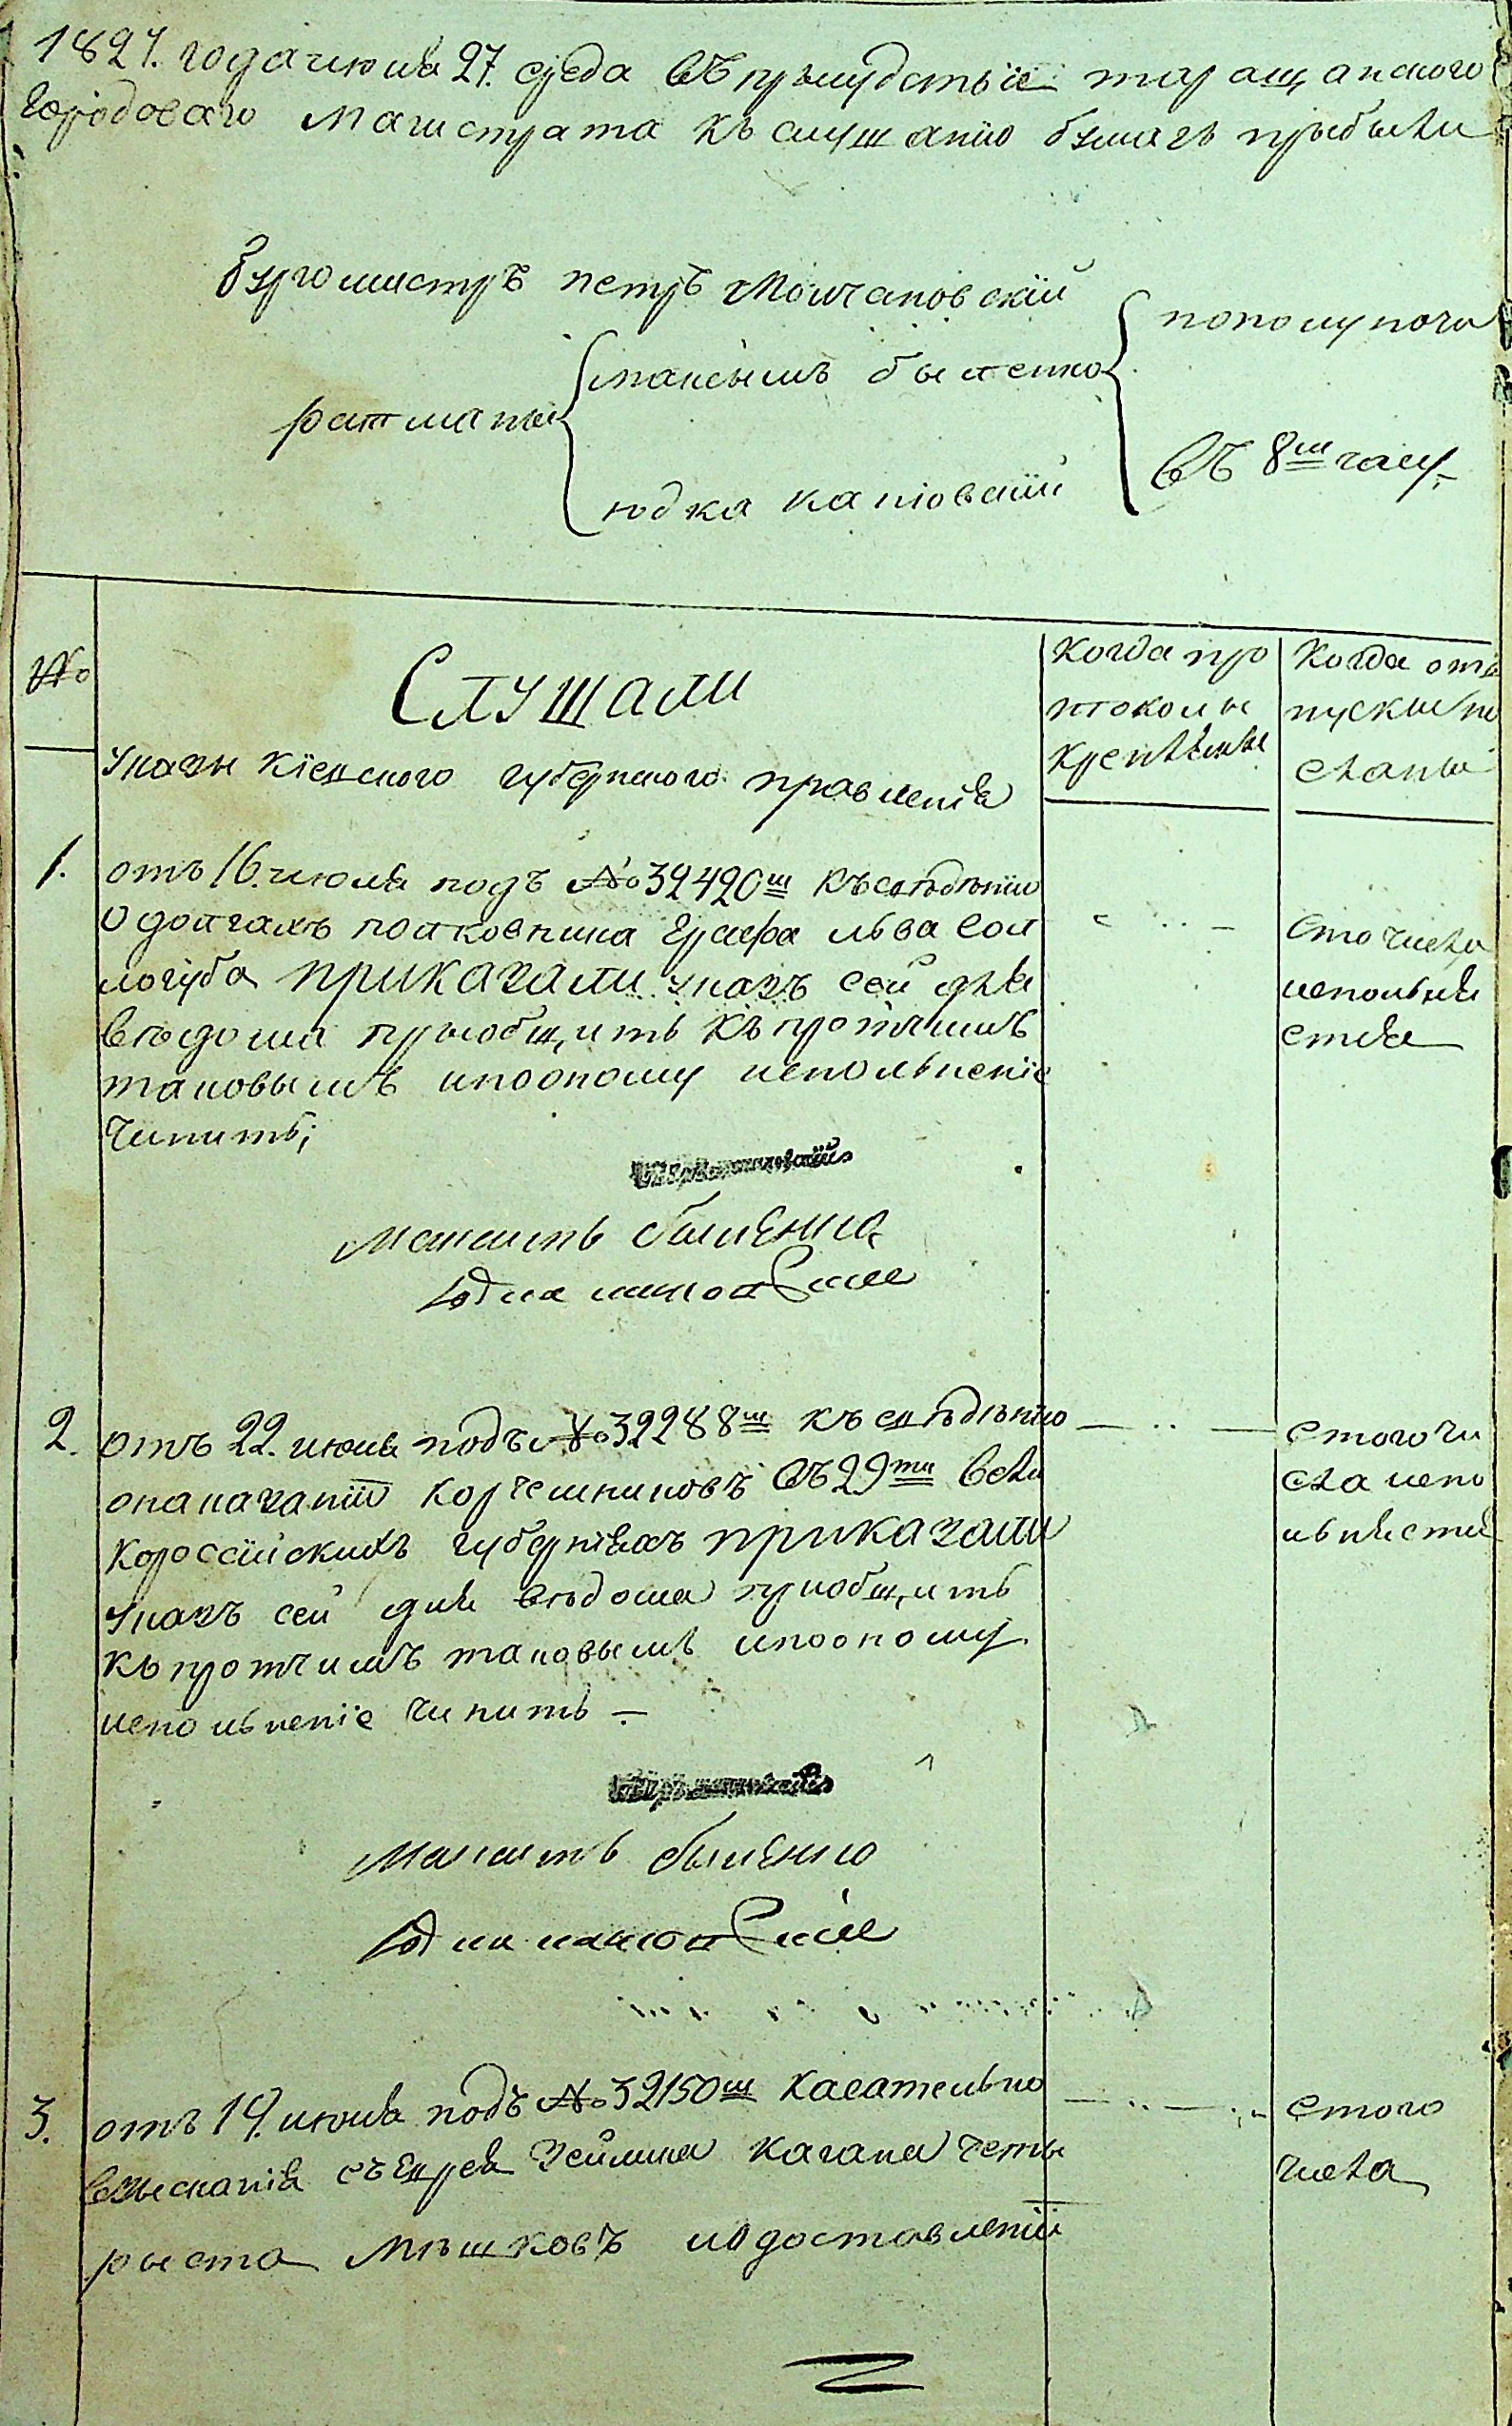 1827. года июня 27. среда въ присудствіи таращанского
Городоваго Магистрата къ слушанію бумагъ прибыли
бургомистръ петръ Молчановскій
ратманы
максымъ быченко
юдка каніовскій
пополуночи
въ 8ш часу
№
Слушали
Когда про
токолы
крепълены
Когда отъ
пускы по
сланы
указы Кіевского губернского правленія
1. отъ 16. июня подъ № 32420ш къ свѣдѣнію
о долгахъ полковника Графа льва сол
логуба приказали указъ сей для
вѣдома приобщить къ протчимъ
таковымъ и по оному исполненіе
чинить;
с то числа
испольня
стся
Юдка каніовскіи
2. отъ 22. июня подъ № 32288ш къ свѣдѣнію
о наказаніи корчемниковъ въ 29ти Вели
короссійскихъ губерніяхъ приказали
указъ сей для вѣдома приобщить
къ протчимъ таковымъ и по оному
исполненіе чинить
с того чи
сла испо
льнясти
Юдка каніовскіи
3. отъ 19. июня подъ № 32150ш Касательно
взысканія съ Еврея Зейлика Кагана четы
рыста Мѣшковъ и о доставленіи
с того
числа